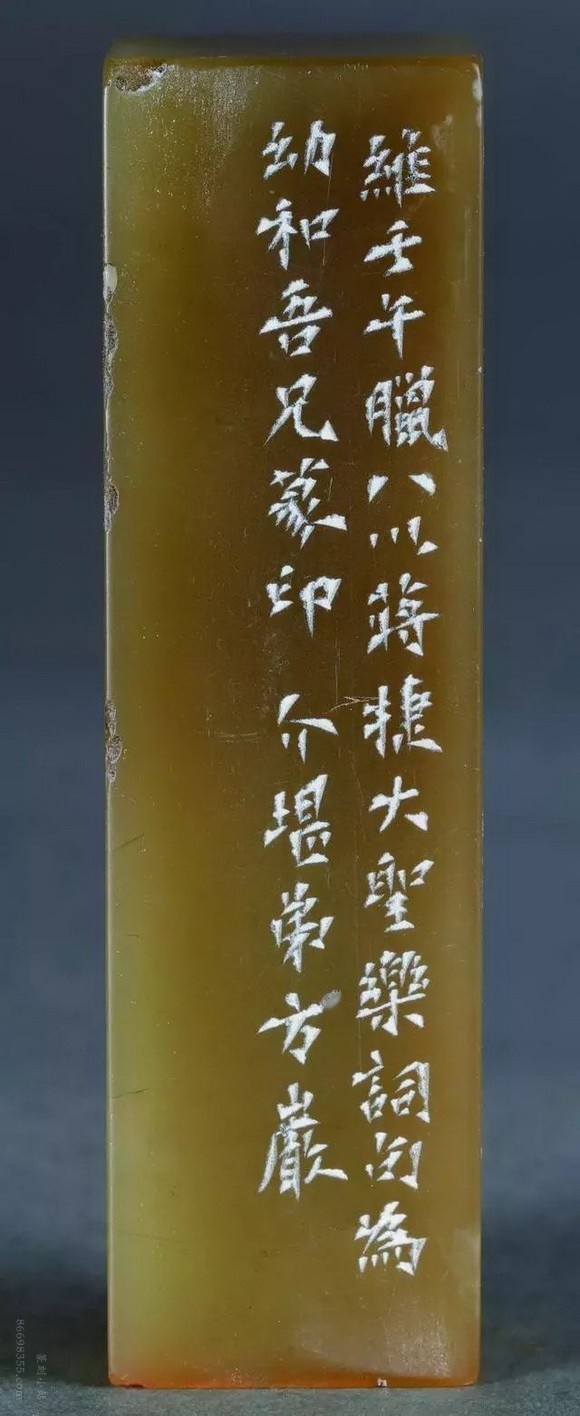 維壬午臘八以蔣捷大聖樂詞句為
幼和吾兄篆印 介堪弟方巖
篆刻小站
86698355.com